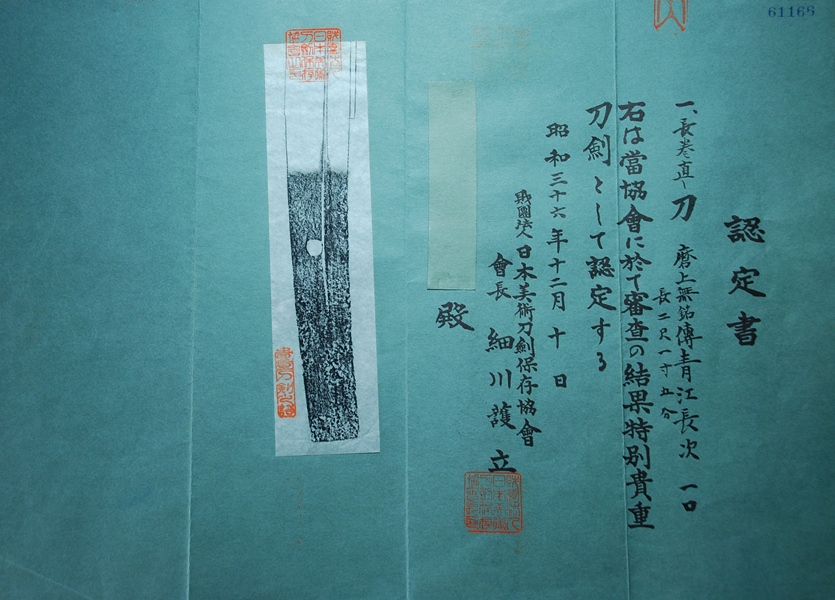 61166
認定書
一、長巻直シ刀 磨上無銘傳青江長次 一口
長二尺一寸五分
右は當協會に於て審査の結果特別貴重
刀劍として認定する
昭和三十六年十二月十日
財團法人日本美術刀劍保存協會
會長 細川護立
殿